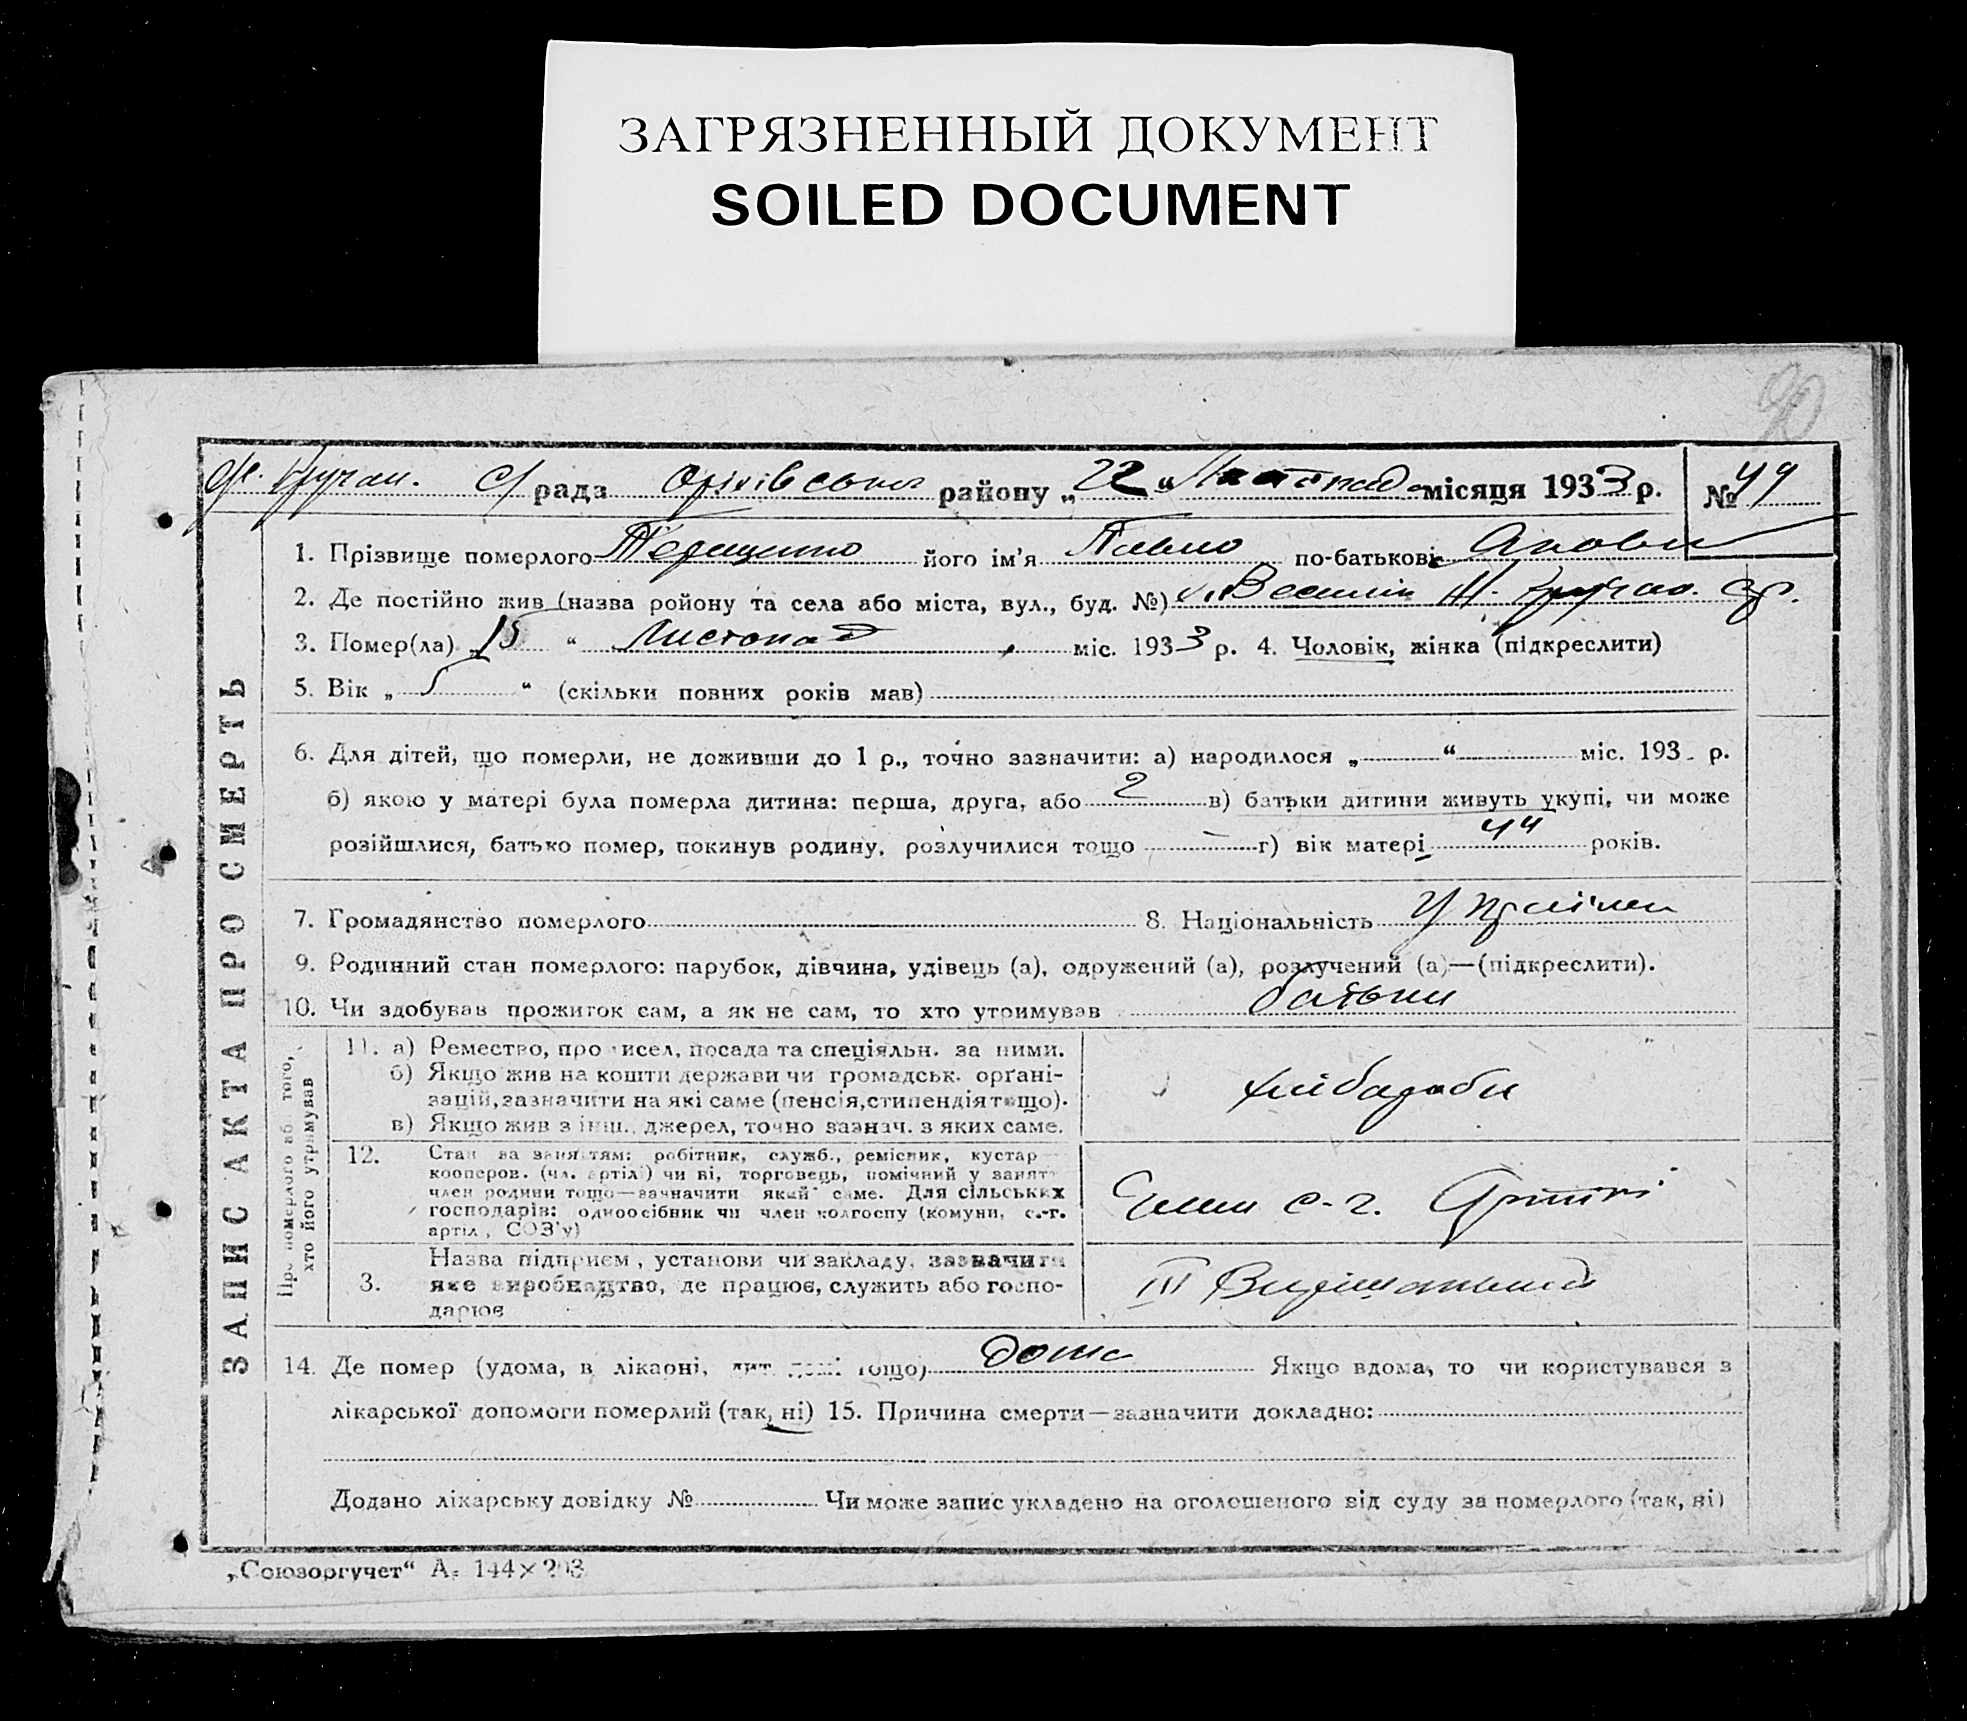 ЗАГРЯЗНЕННЫЙ ДОКУМЕНТ
SOILED DOCUMENT
90
с/рада Оріхівського району „22“ Листопад місяця 1933 р. №
ЗАПИС АКТА ПРО СМЕРТЬ
1. Прізвище померлого Терещенко його ім'я Павло по-батькові Якови
2. Де постійно жив (назва ройону та села або міста, вул., буд. №)
3. Помер(ла) 15 “ Листопад міс. 1933 р. 4. Чоловік, жінка (підкреслити)
5. Вік „ 5 “ (скільки повних років мав)
6. Для дітей, що померли, не доживши до 1 р., точно зазначити: а) народилося „ “ міс. 193 р.
б) якою у матері була померла дитина: перша, друга, або 2 в) батьки дитини живуть укупі, чи може
розійшлися, батько помер, покинув родину, розлучилися тощо г) вік матері 44 років.
7. Громадянство померлого 8. Національність Українец
9. Родинний стан померлого: парубок, дівчина, удівець (а), одружений (а), розлучений (а)—(підкреслити).
10. Чи здобував прожиток сам, а як не сам, то хто утримував батьки
Про померлого або того, хто його утримував
11. а) Ремество, промисел, посада та спеціяльн. за ними.
б) Якщо жив на кошти держави чи громадськ. орґані-
зацій, зазначити на які саме (пенсія, стипендія тощо).
в) Якщо жив з інш. джерел, точно зазнач. з яких саме.
хліборобы
12. Стан за заняттям: робітник, служб., ремісник, кустар
кооперов. (чл. артілі) чи ні, торговець, помічний у занятт
член родини тощо—зазначити який саме. Для сільських
господарів: одноосібник чи член колгоспу (комуни, с.-г.
артіл, СОЗ'у)
Член с-г. Артілі
3. Назва підприєм, установи чи закладу, зазначити
яке виробництво, де працює, служить або госпо-
дарює
III Вирішальний
14. Де помер (удома, в лікарні, дит. домі тощо) дома Якщо вдома, то чи користувався з
лікарської допомоги померлий (так, ні) 15. Причина смерти—зазначити докладно:
Додано лікарську довідку № Чи може запис укладено на оголошеного від суду за померлого (так, ні)
„Союзоргучет“ А 144×203